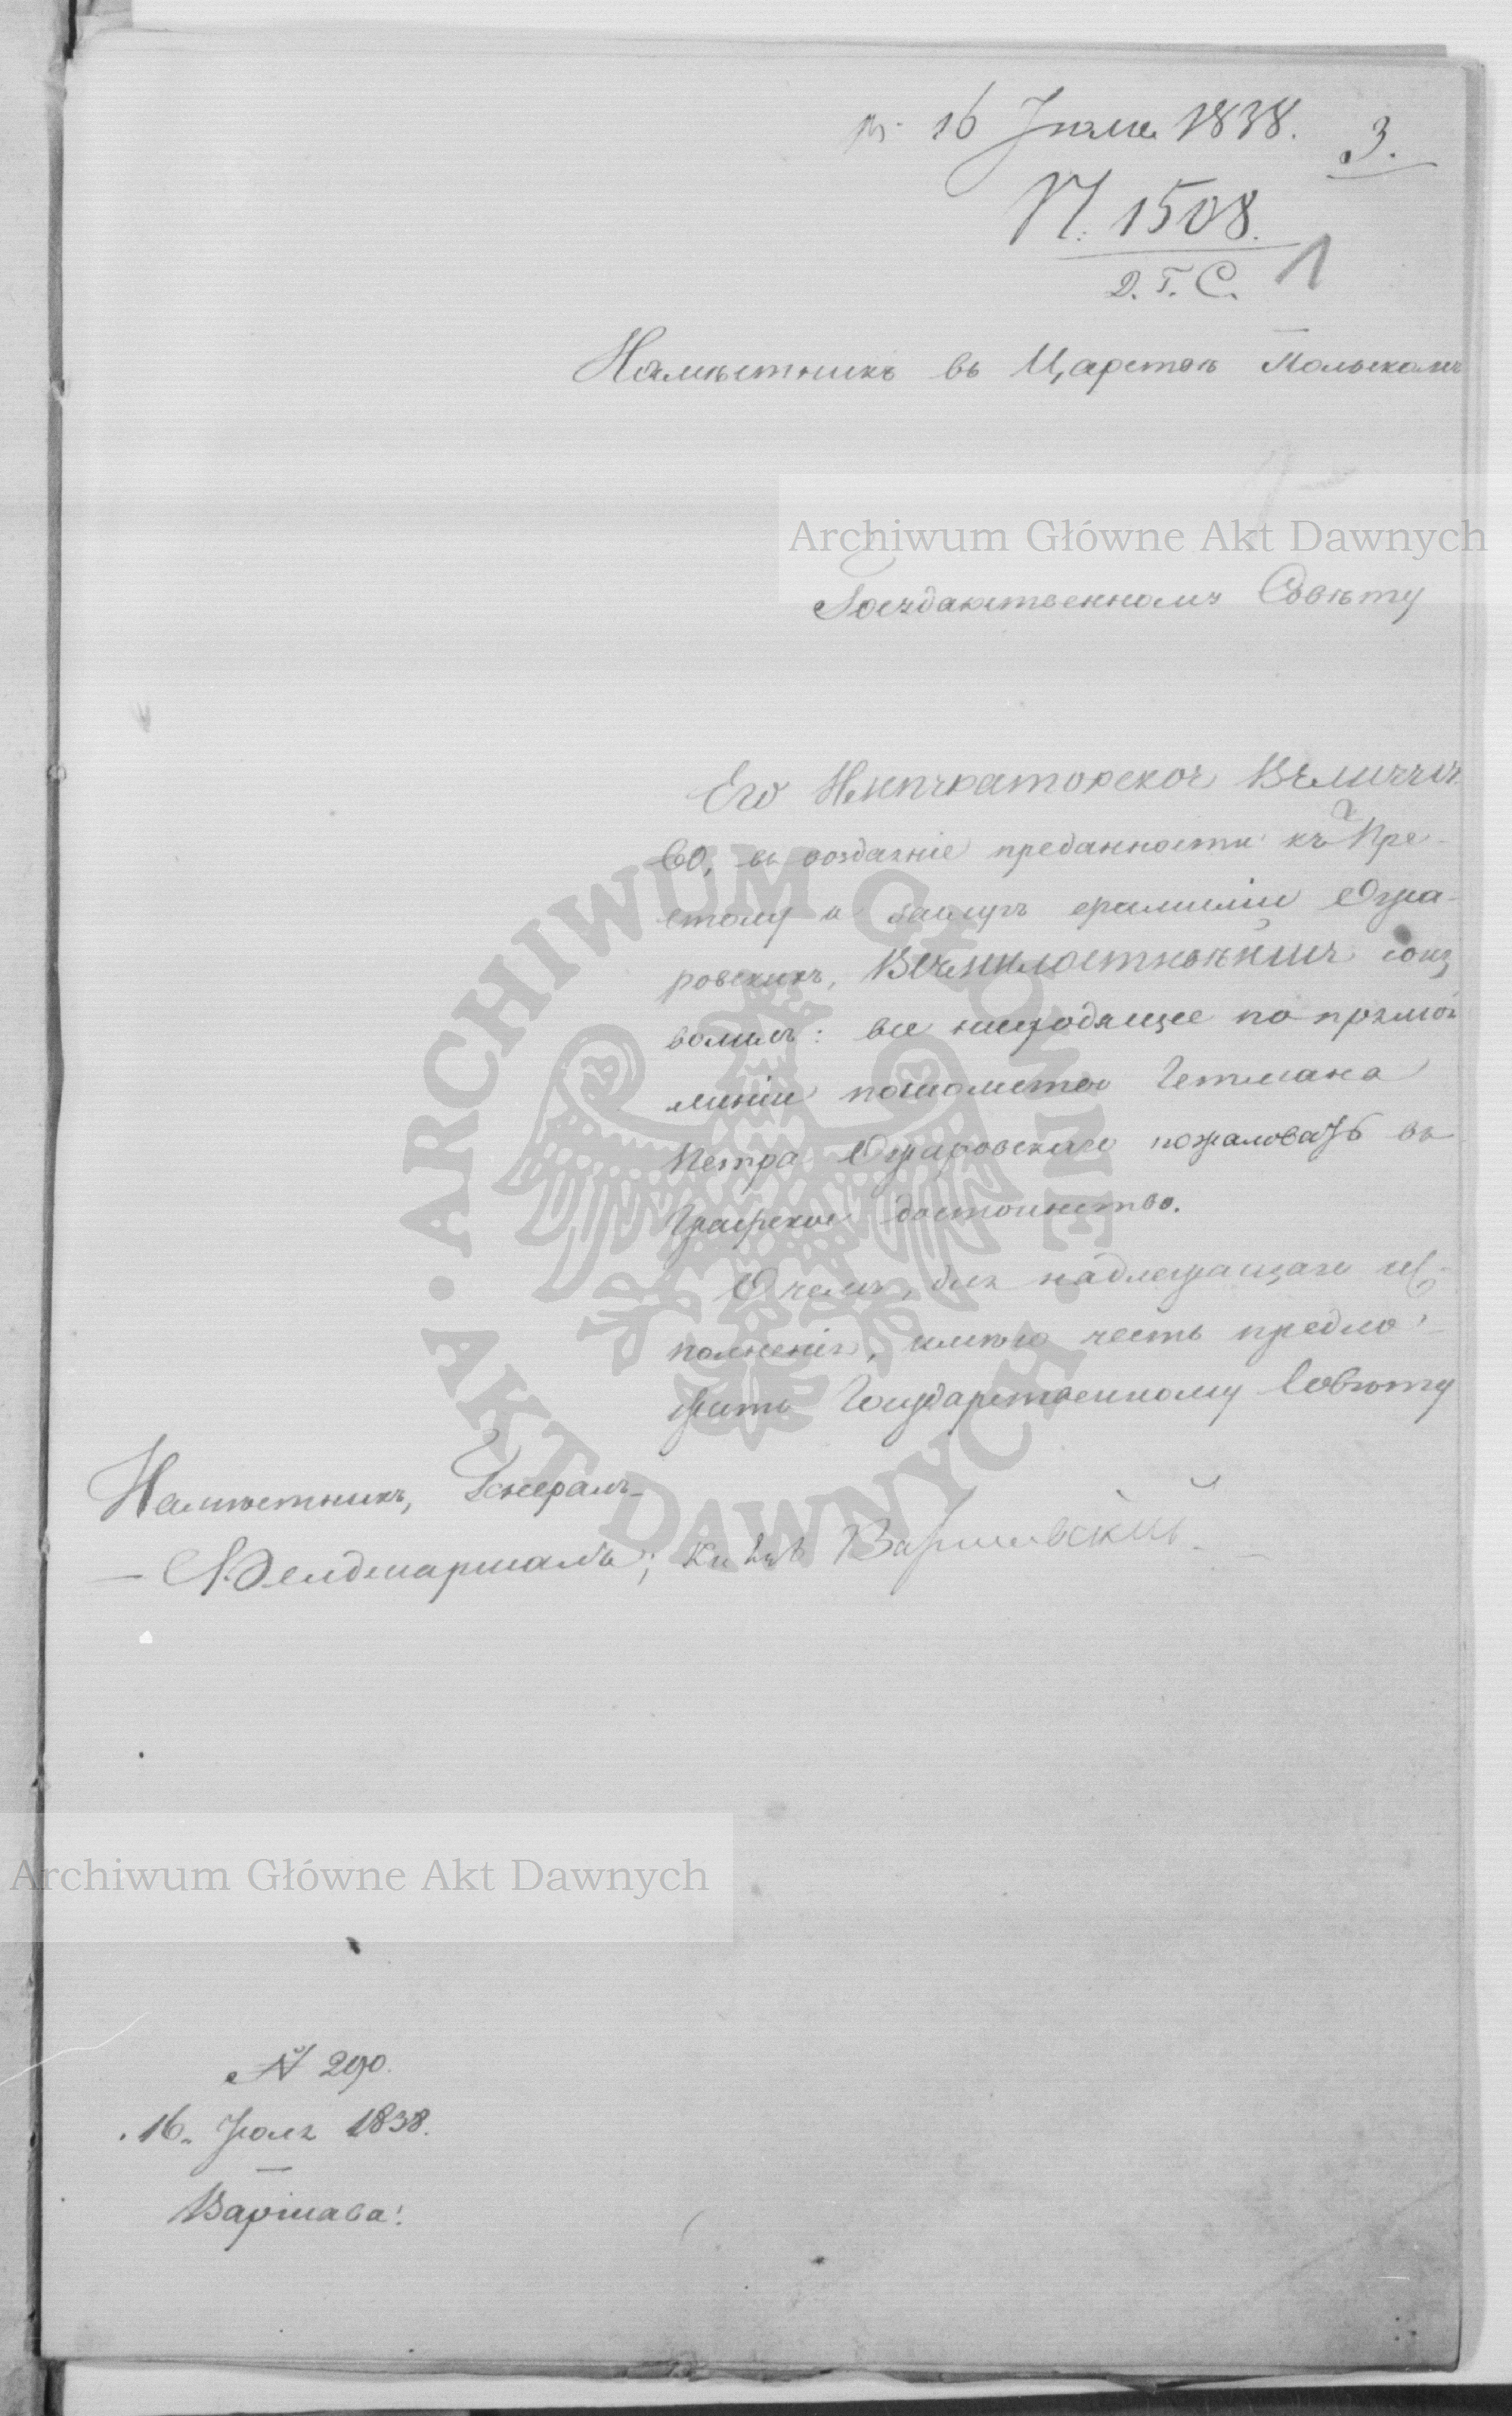 16 Іюля 1838.
3.
N. 1508.
Д. Г. С.
1
Намѣстникъ въ Царствѣ Польскомъ
Archiwum Główne Akt Dawnych
Государственному Совѣту
Его Императорское Величест
во, въ воздаяніе преданности къ Пре-
столу и заслугъ фамиліи Ожа-
ровскихъ, Всемилостивѣйше соиз
волилъ: все нисходящее по прямой
линіи потомство Гетмана
Петра Ожаровскаго пожаловать въ
Графское достоинство.
О чемъ, для надлежащаго ис-
полненія, имѣю честь предло-
жить Государственному Совѣту
Намѣстникъ, Генералъ-
Фельдмаршалъ, Князь Варшавскій
ARCHIWUM GŁÓWNE
AKT DAWNYCH
Archiwum Główne Akt Dawnych
№ 290.
16. Іюля 1838.
Варшава.